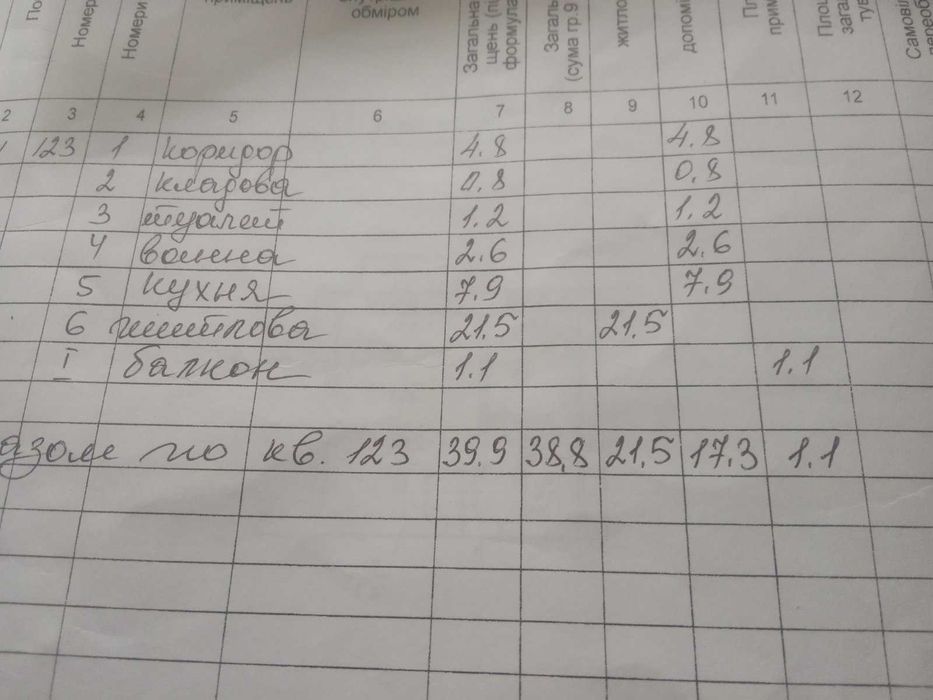 По
Номер
Номери
приміщень
обміром
Загальна
щень (пл
формула
Загаль
(сума гр.9
житло
допомі
Пл
прим
Площ
зага
тув
Самовіл
переоб
2 3 4 5 6 7 8 9 10 11 12
123 1 коридор 4.8 4.8
2 кладова 0.8 0.8
3 туалет 1.2 1.2
4 ванна 2.6 2.6
5 кухня 7.9 7.9
6 житлова 21.5 21.5
I балкон 1.1 1.1
азом по кв. 123 39.9 38,8 21.5 17.3 1.1